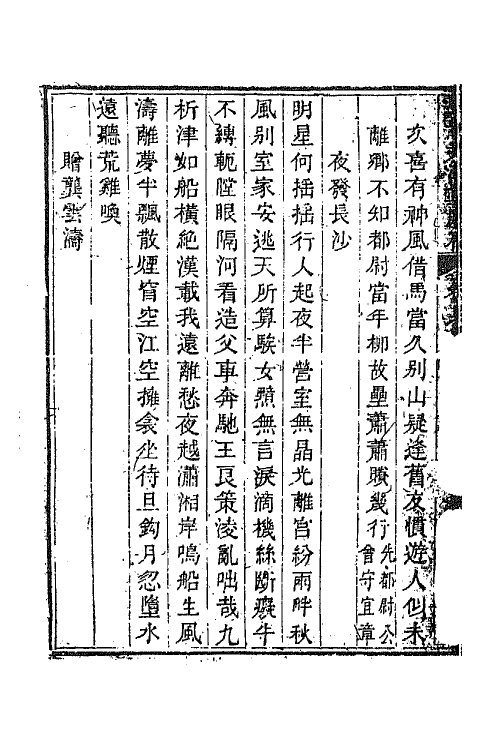 欠喜有神風借馬當久别山疑逢舊友慣遊人似未
離鄉不知都尉當年柳故壘蕭蕭賸幾行先都尉公曾守宜章
夜發長沙
明星何揺揺行人起夜半營室無晶光離宮紛雨畔秋
風别室家安逃天所算騃女黯無言淚滴機絲斷癡牛
不縛軛瞠眼隔河看造父車奔馳王良策淩亂咄哉九
析津如船橫絶漢載我遠離愁夜越瀟湘岸鳴船生風
濤離夢半飄散煙窅空江空擁衾坐待旦鈎月忽墮水
遠聽荒雞喚
贈龔雲濤